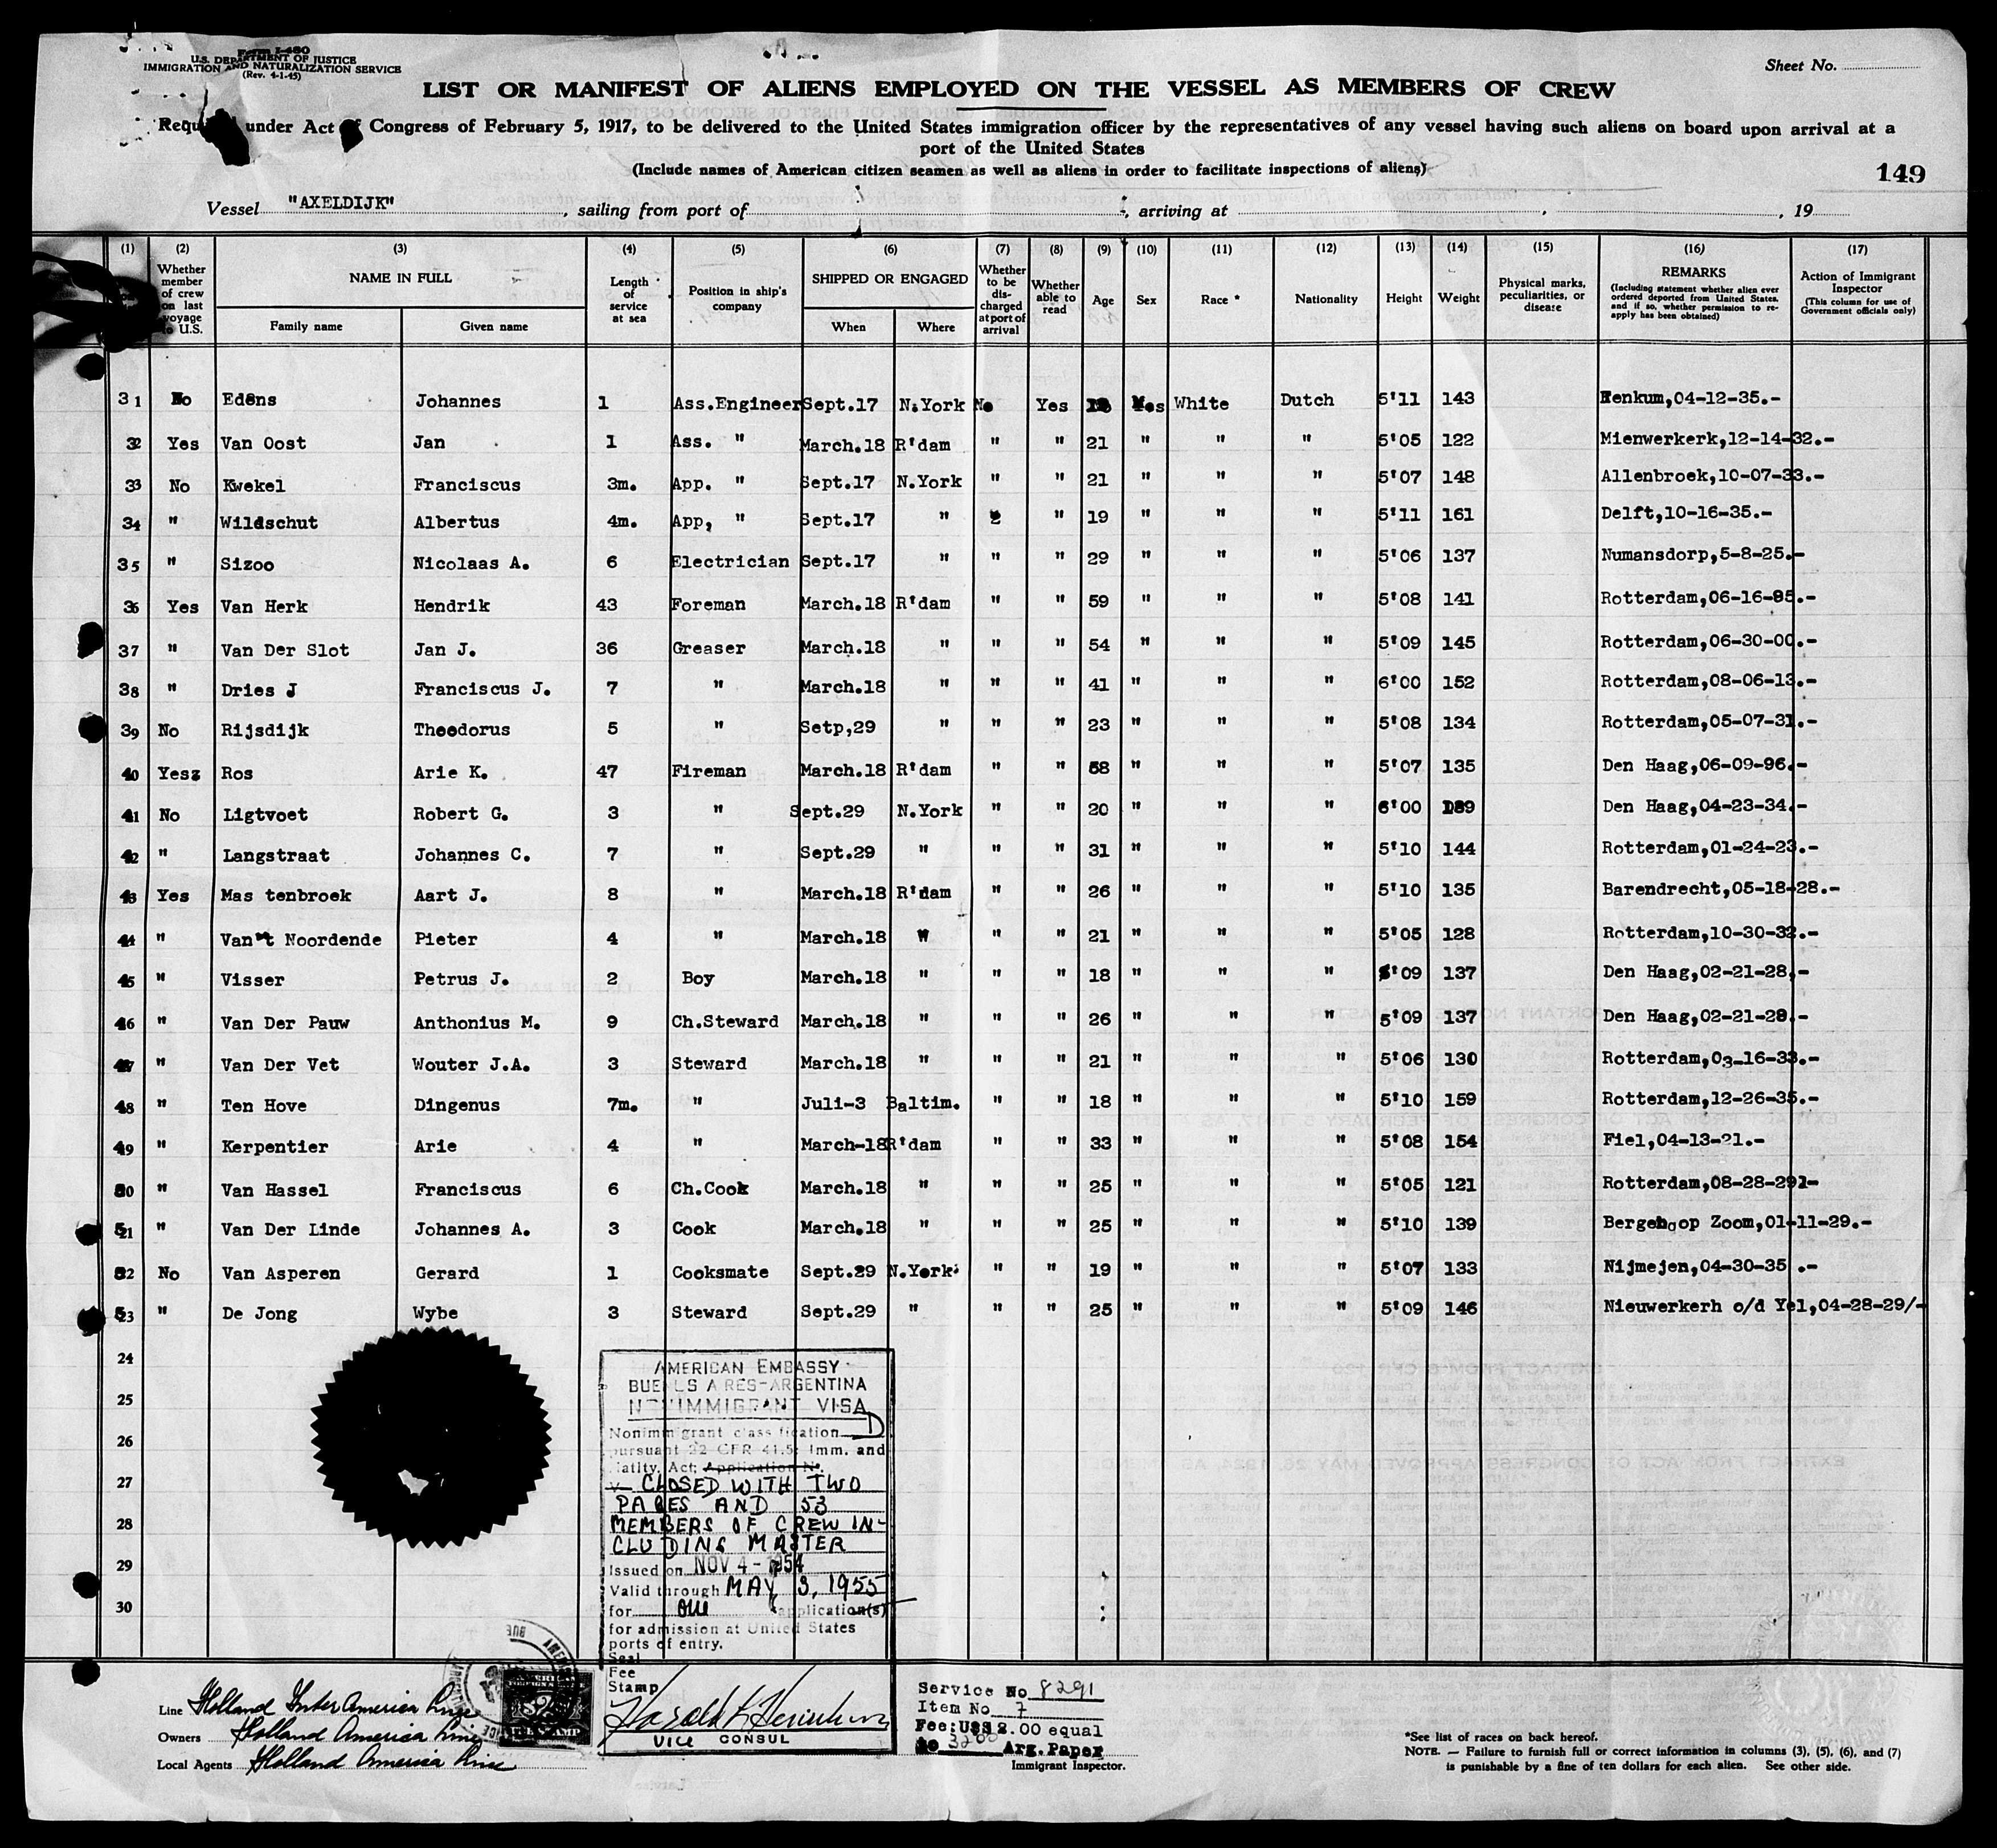 Form I-480
U.S. DEPARTMENT OF JUSTICE
IMMIGRATION AND NATURALIZATION SERVICE
(Rev. 4-1-45)
Sheet No.
LIST OR MANIFEST OF ALIENS EMPLOYED ON THE VESSEL AS MEMBERS OF CREW
under Act of Congress of February 5, 1917, to be delivered to the United States immigration officer by the representatives of any vessel having such aliens on board upon arrival at a
port of the United States
(Include names of American citizen seamen as well as aliens in order to facilitate inspections of aliens)
149
Vessel "AXELDIJK", sailing from port of , arriving at , , 19
(1) (2) (3) (4) (5) (6) (7) (8) (9) (10) (11) (12) (13) (14) (15) (16) (17)
Whether member of crew on last voyage to U.S. NAME IN FULL Family name Given name Length of service at sea Position in ship's company SHIPPED OR ENGAGED When Where Whether to be discharged at port of arrival Whether able to read Age Sex Race * Nationality Height Weight Physical marks, peculiarities, or disease REMARKS (Including statement whether alien ever ordered deported from United States, and if so, whether permission to re-apply has been obtained) Action of Immigrant Inspector (This column for use of Government officials only)
31 No Edens Johannes 1 Ass.Engineer Sept.17 N.York No Yes White Dutch 5'11 143 Renkum,04-12-35.-
32 Yes Van Oost Jan 1 Ass. " March.18 R'dam " " 21 " " " 5'05 122 Mienwerkerk,12-14-32.-
33 No Kwekel Franciscus 3m. App. " Sept.17 N.York " " 21 " " " 5'07 148 Allenbroek,10-07-33.-
34 " Wildschut Albertus 4m. App, " Sept.17 " " 19 " " " 5'11 161 Delft,10-16-35.-
35 " Sizoo Nicolaas A. 6 Electrician Sept.17 " " " 29 " " " 5'06 137 Numansdorp,5-8-25.-
36 Yes Van Herk Hendrik 43 Foreman March.18 R'dam " " 59 " " " 5'08 141 Rotterdam,06-16-95.-
37 " Van Der Slot Jan J. 36 Greaser March.18 " " " 54 " " " 5'09 145 Rotterdam,06-30-00.-
38 " Dries J Franciscus J. 7 " March.18 " " " 41 " " " 6'00 152 Rotterdam,08-06-13.-
39 No Rijsdijk Theodorus 5 " Setp,29 " " " 23 " " " 5'08 134 Rotterdam,05-07-31.-
40 Yesz Ros Arie K. 47 Fireman March.18 R'dam " " 58 " " " 5'07 135 Den Haag,06-09-96.-
41 No Ligtvoet Robert G. 3 " Sept.29 N.York " " 20 " " " 6'00 Den Haag,04-23-34.-
42 " Langstraat Johannes C. 7 " Sept.29 " " " 31 " " " 5'10 144 Rotterdam,01-24-23.-
43 Yes Mas tenbroek Aart J. 8 " March.18 R'dam " " 26 " " " 5'10 135 Barendrecht,05-18-28.-
44 " Van't Noordende Pieter 4 " March.18 " " " 21 " " " 5'05 128 Rotterdam,10-30-32.-
45 " Visser Petrus J. 2 Boy March.18 " " " 18 " " " 5'09 137 Den Haag,02-21-28.-
46 " Van Der Pauw Anthonius M. 9 Ch.Steward March.18 " " " 26 " " " 5'09 137 Den Haag,02-21-28.-
47 " Van Der Vet Wouter J.A. 3 Steward March.18 " " " 21 " " " 5'06 130 Rotterdam,03-16-33.-
48 " Ten Hove Dingenus 7m. " Juli-3 Baltim. " " 18 " " " 5'10 159 Rotterdam,12-26-35.-
49 " Kerpentier Arie 4 " March-18 R'dam " " 33 " " " 5'08 154 Fiel,04-13-21.-
50 " Van Hassel Franciscus 6 Ch.Cook March.18 " " " 25 " " " 5'05 121 Rotterdam,08-28-29
21 " Van Der Linde Johannes A. 3 Cook March.18 " " " 25 " " " 5'10 139 Bergen op Zoom,01-11-29.-
52 No Van Asperen Gerard 1 Cooksmate Sept.29 N.York " " 19 " " " 5'07 133 Nijmejen,04-30-35 .-
23 " De Jong Wybe 3 Steward Sept.29 " " " 25 " " " 5'09 146 Nieuwerkerh o/d Yel,04-28-29/-
24
25
26
27
28
29
30
AMERICAN EMBASSY
BUENOS AIRES-ARGENTINA
NONIMMIGRANT VISA
Nonimmigrant classification D
pursuant 22 CFR 41.5; Imm. and
Natlty. Act; Application No.
CLOSED WITH TWO
PAGES AND 53
MEMBERS OF CREW IN-
CLUDING MASTER
Issued on NOV 4 - 1954
Valid through MAY 3, 1955
for one application(s)
for admission at United States
ports of entry.
Seal
Fee
Stamp
VICE CONSUL
Line Holland Inter America Line
Owners Holland America Line
Local Agents Holland America Line
Service No 8291
Item No 7
Fee: US$ 2.00 equal
to Arg.Paper
Immigrant Inspector.
*See list of races on back hereof.
NOTE. — Failure to furnish full or correct information in columns (3), (5), (6), and (7)
is punishable by a fine of ten dollars for each alien. See other side.